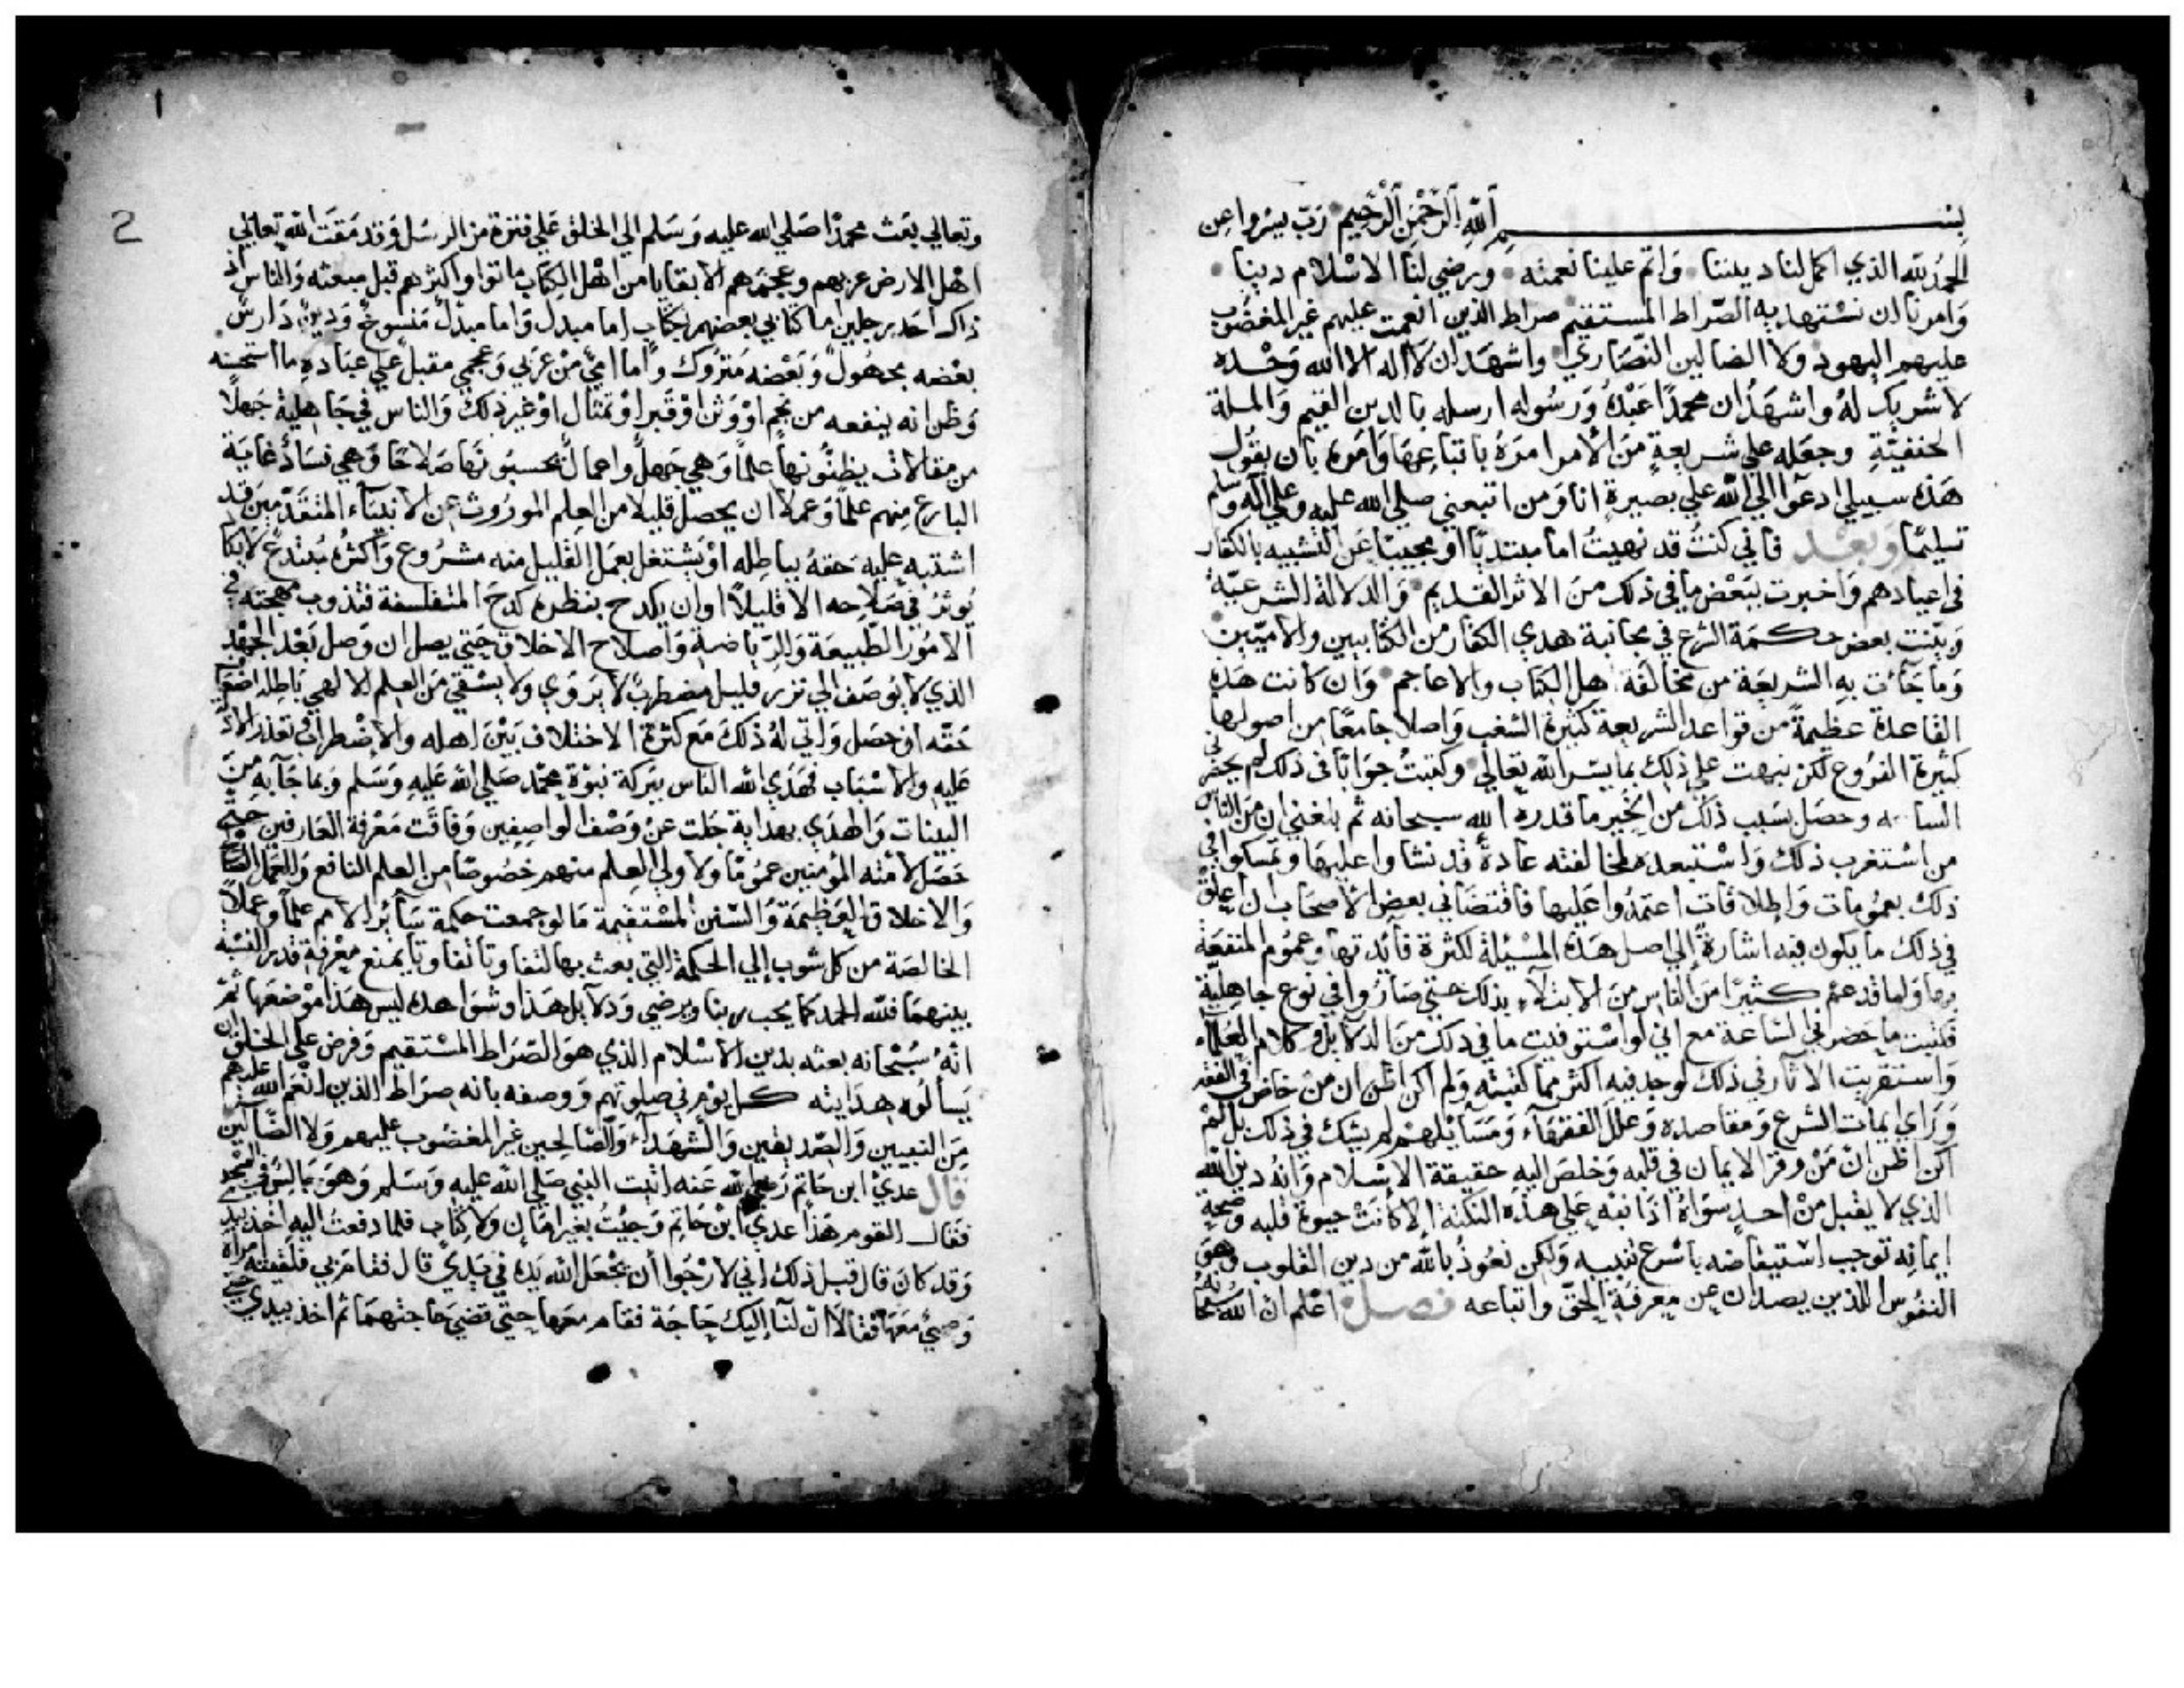 بسم الله الرحمن الرحيم رب يسر واعن
الحمد لله الذي اكمل لنا ديننا واتم علينا نعمته ورضي لنا الاسلام دينا
وامرنا ان نستهديه الصراط المستقيم صراط الذين انعمت عليهم غير المغضوب
عليهم اليهود ولا الضالين النصاري واشهد ان لا اله الا الله وحده
لا شريك له واشهد ان محمدا عبده ورسوله ارسله بالدين القيم والملة
الحنفية وجعله علي شريعة من الأمر امره باتباعها وامره بان يقول
هذه سبيلي ادعوا الي الله علي بصيرة انا ومن اتبعني صلي الله عليه وعلي اله وسلم
تسليما وبعد فاني كنت قد نهيت اما مبتديا او مجيبا عن التشبيه بالكفار
في اعيادهم واخبرت ببعض ما في ذلك من الاثر القديم والدلالة الشرعية
وبينت بعض حكمة الشرع في مجانبة هدي الكفار من الكتابيين والاميين
وما جآءت به الشريعة من مخالفة اهل الكتاب والاعاجم وان كانت هذه
القاعدة عظيمة من قواعد الشريعة كثيرة الشعب واصلا جامعا من اصولها
كثيرة الفروع لكن نبهت علي ذلك بما يسر الله تعالي وكتبت جوابا في ذلك لم يحضرني
الساعه وحصل بسبب ذلك من الخير ما قدره الله سبحانه ثم بلغني ان من الناس
من استغرب ذلك واستبعده لمخالفته عادة قد نشاوا عليها وتمسكوا في
ذلك بعمومات واطلاقات اعتمدوا عليها فاقتضاني بعض الأصحاب ان اعلق
في ذلك ما يكون فيه اشارة إلي اصل هذه المسئلة لكثرة فائدتها وعموم المنفعة
بها ولما قد عم كثيرا من الناس من الابتلآء بذلك حتي صاروا في نوع جاهلية
فكتبت ما حضرني الساعة مع اني لو استوفيت ما في ذلك من الدلايل وكلام العلمآء
واستقريت الاثار في ذلك لوجد فيه اكثر مما كتبته ولم اكن اظن ان من خاض في الفقه
وراي ايمات الشرع ومقاصده وعلل الفقهآء ومسايلهم لم يشك في ذلك بل لم
اكن اظن ان من وقر الايمان في قلبه وخلص اليه حقيقة الإسلام وانه دين الله
الذي لا يقبل من احد سواه اذا نبه علي هذه النكتة الا كانت حيوة قلبه وصحة
ايمانه توجب استيقاضه باسرع تنبيه ولكن نعوذ بالله من دين القلوب وهوي
النفوس اللذين يصدان عن معرفة الحق واتباعه فصل اعلم ان الله سبحانه
وتعالي بعث محمدا صلي الله عليه وسلم الي الخلق علي فترة من الرسل وقد مقت الله تعالي
اهل الارض عربهم وعجمهم الا بقايا من اهل الكتاب ماتوا او اكثرهم قبل مبعثه والناس اذ
ذاك احد رجلين اما كتابي بعضهم بكتاب اما مبدل واما مبدل منسوخ ودين دارس
بعضه مجهول وبعضه متروك واما امي من عربي وعجمي مقبل علي عباده ما استحسنه
وظن انه ينفعه من نجم او وثن او قبر او تمثال او غير ذلك والناس في جاهلية جهلا
من مقالات يظنونها علما وهي جهل واعمال يحسبونها صلاحا وهي فساد غاية
البارع منهم علما وعملا ان يحصل قليلا من العلم الموروث عن الانبيآء المتقدمين قد
اشتبه عليه حقه بباطله او يشتغل بعمل القليل منه مشروع واكثره مبتدع لا يكاد
يوثر في صلاحه الا قليلا او ان يكدح بنظره كدح المتفلسفة فتذوب مهجته في
الامور الطبيعة والرياضة واصلاح الاخلاق حتي يصل ان وصل بعد الجهد
الذي لا يوصف الي نزر قليل مضطرب لا يروي ولا يشفي من العلم الالهي باطله اضعاف
حقه ان حصل واني له ذلك مع كثرة الاختلاف بين اهله والاضطراب وتعذر الادلة
عليه والاسباب فهدي الله الناس ببركة نبوة محمد صلي الله عليه وسلم وبما جآء به من
البينات والهدي بهداية جلت عن وصف الواصفين وفاقت معرفة العارفين حتي
حصل لأمته المؤمنين عموما ولاولي العلم منهم خصوصا من العلم النافع والعمل الصالح
والاخلاق العظيمة والسنن المستقيمة ما لو جمعت حكمة سآئر الامم علما وعملا
الخالصة من كل شوب إلي الحكمة التي بعث بها لتفاوتا تفاوتا يمنع معرفة قدر النسبة
بينهما فلله الحمد كما يحب ربنا ويرضي ودلآيل هذا وشواهده ليس هذا موضعها ثم
انه سبحانه بعثه بدين الاسلام الذي هو الصراط المستقيم وفرض علي الخلق ان
يسألوه هدايته كل يوم في صلوتهم ووصفه بانه صراط الذين انعم الله عليهم
من النبيين والصديقين والشهدآء والصالحين غير المغضوب عليهم ولا الضآلين
قال عدي ابن حاتم رضي الله عنه اتيت النبي صلي الله عليه وسلم وهو جالس في المسجد
فقال القوم هذا عدي ابن حاتم وجيت بغير امان ولا كتاب فلما دفعت اليه اخذ بيدي
وقد كان قال قبل ذلك اني لارجوا أن يجعل الله يده في يدي قال فقام بي فلقيته امرأة
وصبي معها فقالا ان لنا إليك حاجة فقام معها حتي قضي حاجتهما ثم اخذ بيدي حتي
1
2